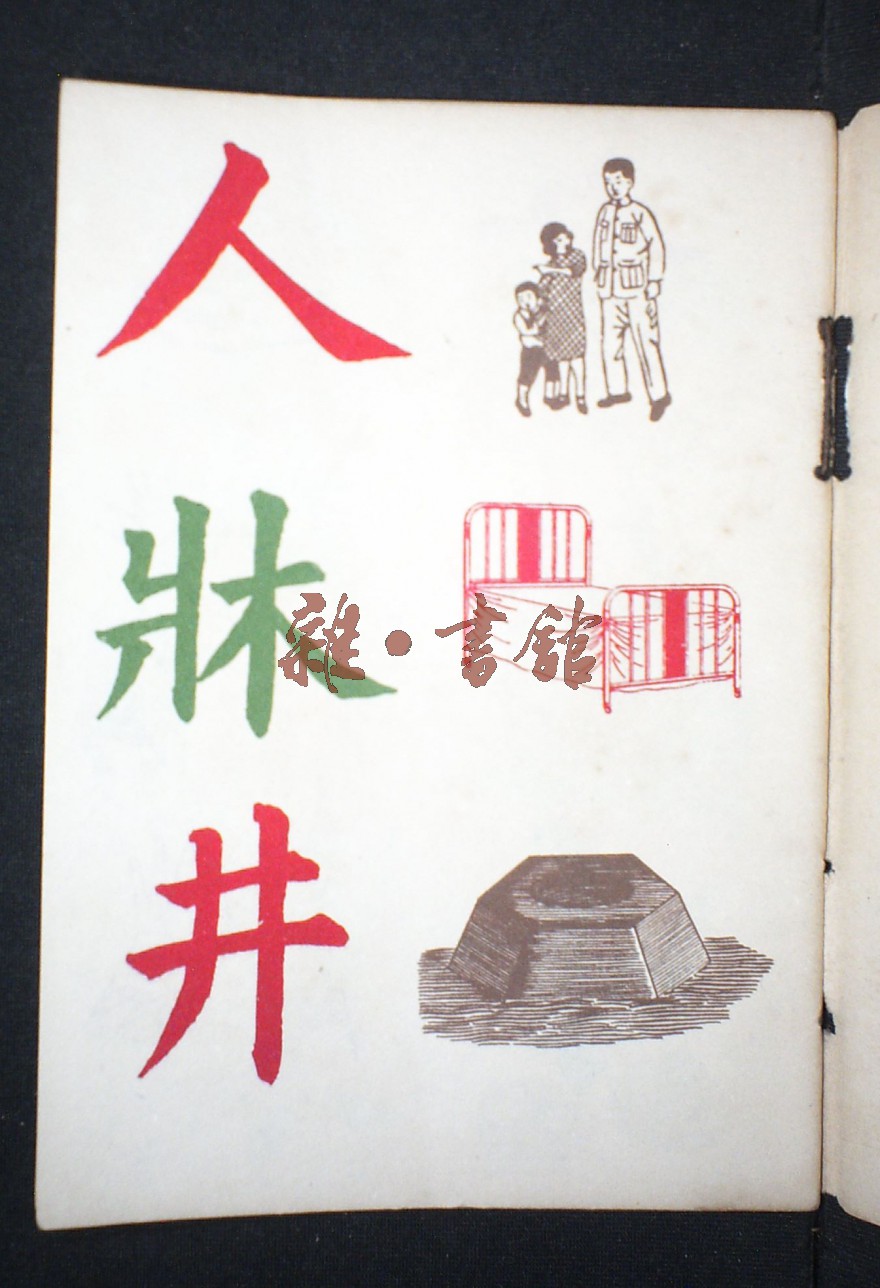 人
牀
雜·書館
井